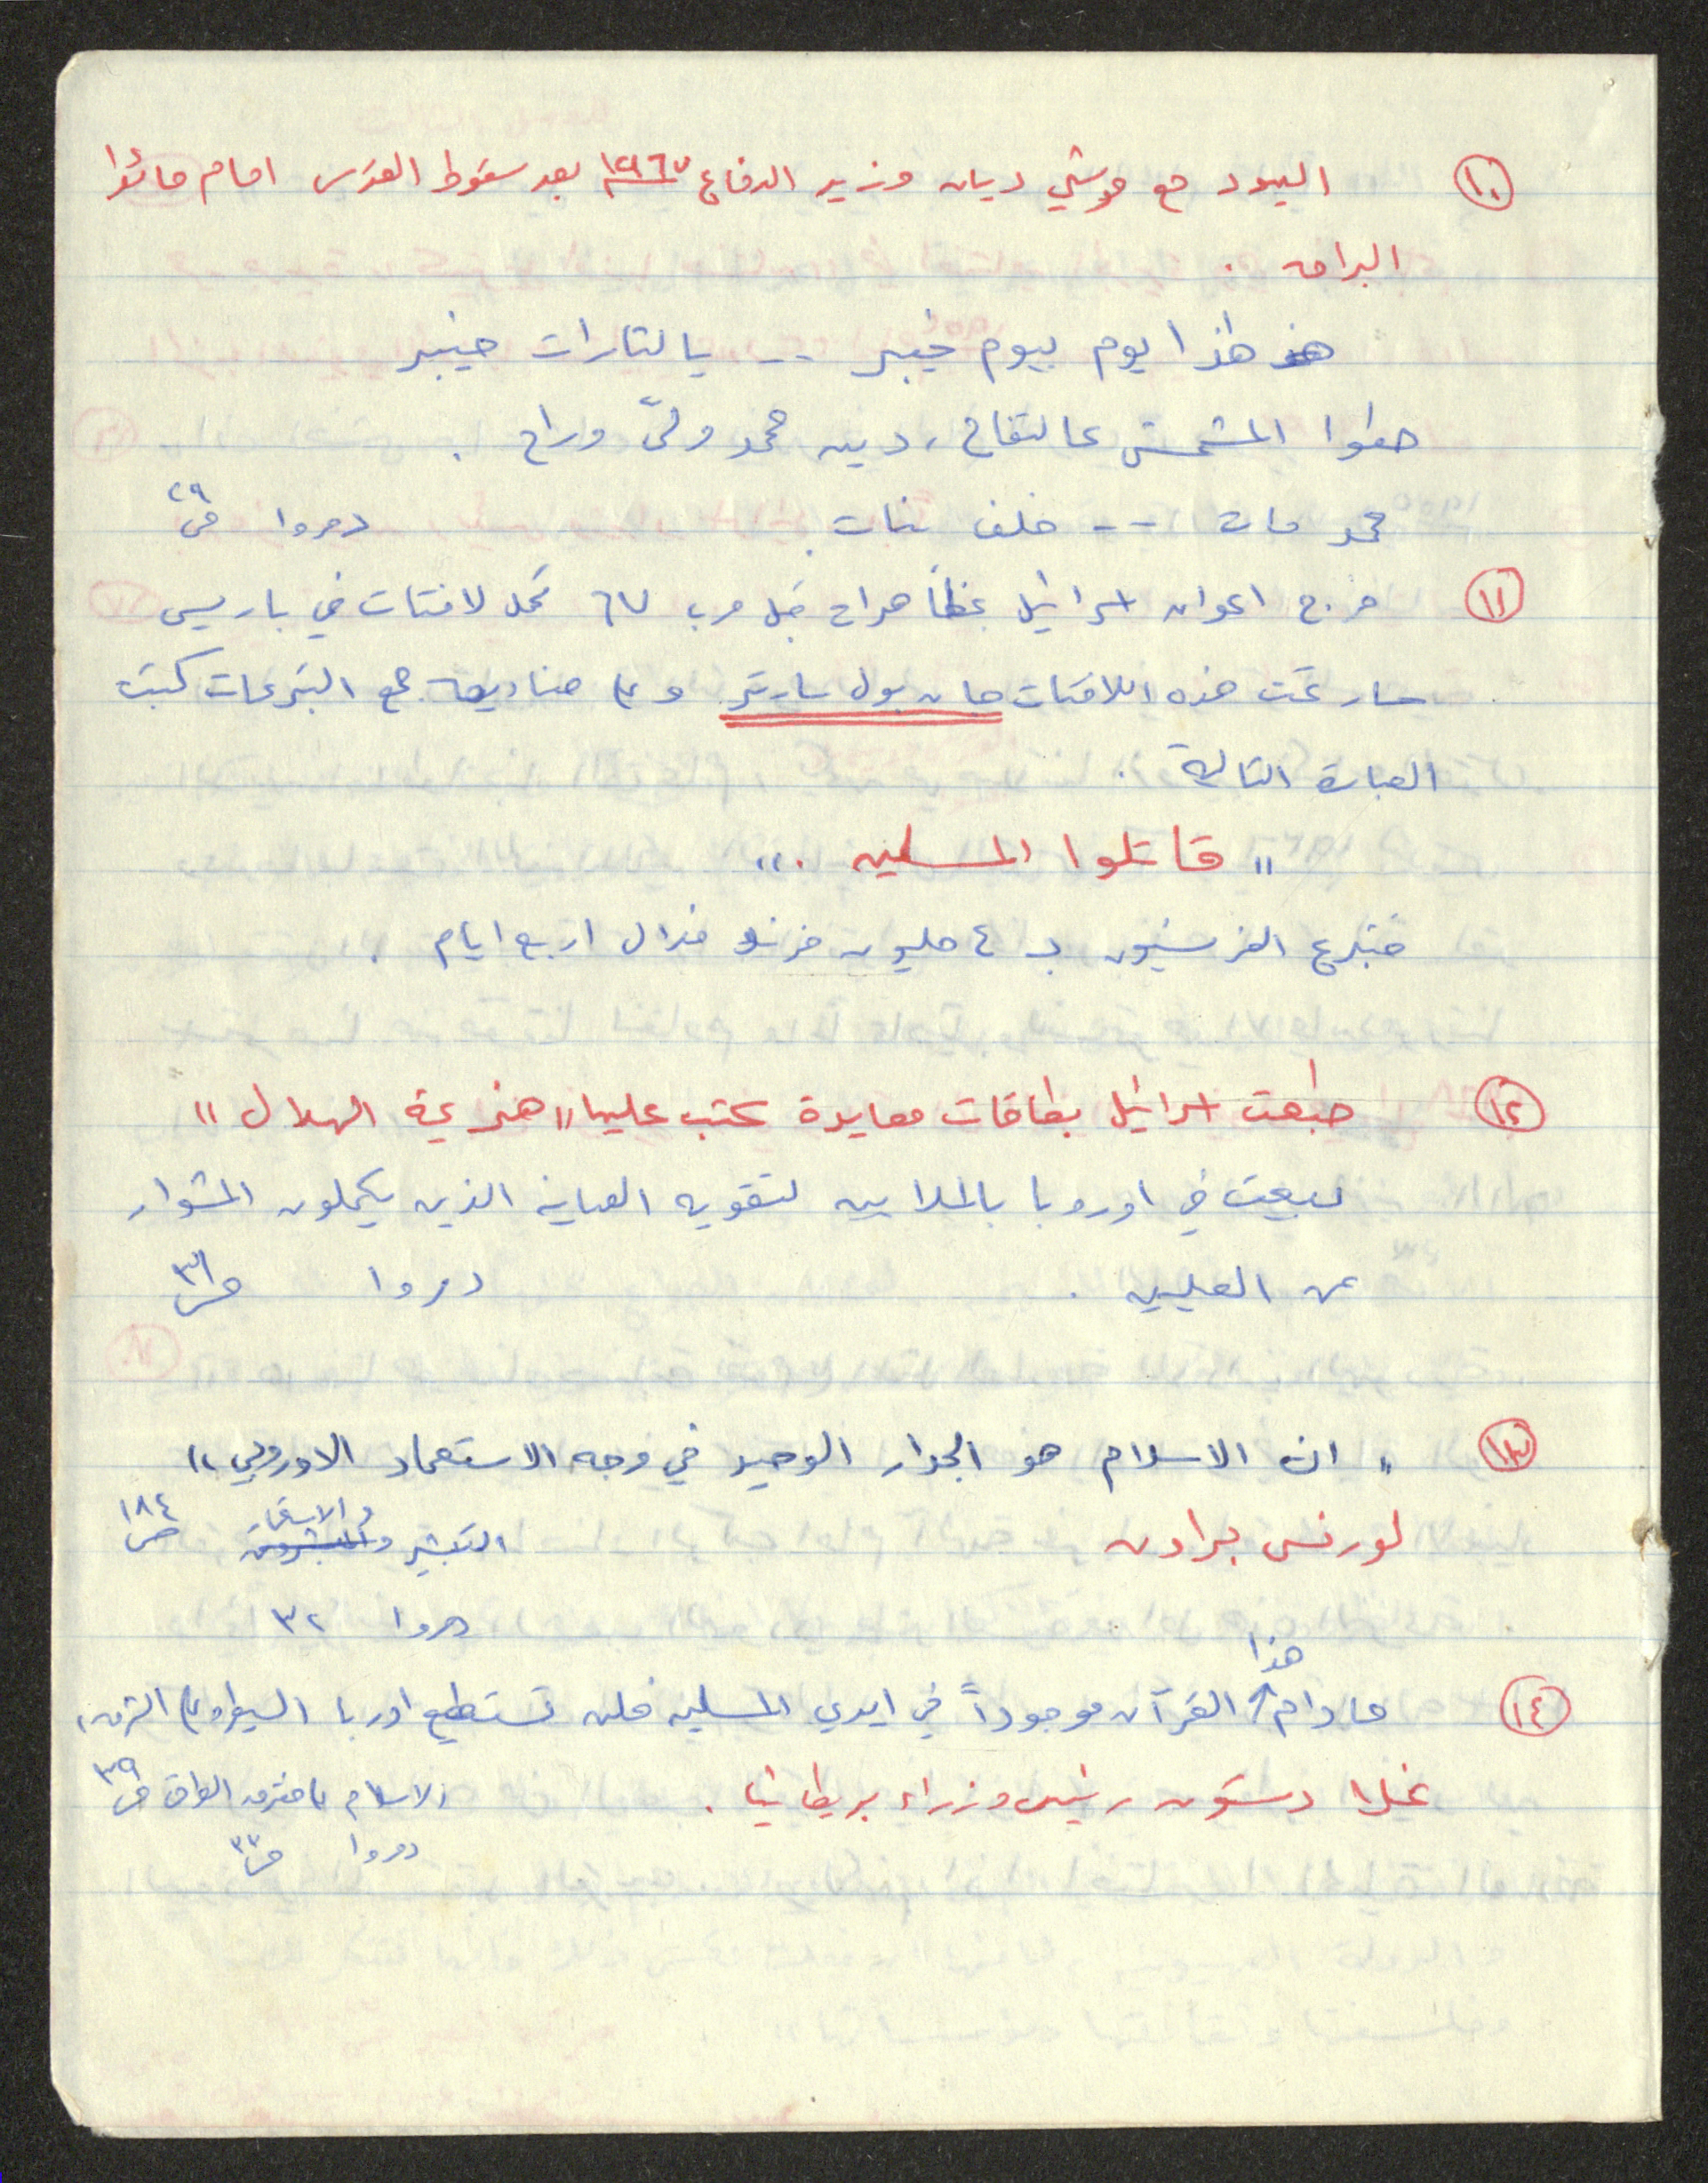 ١٠ اليهود مع موشي ديان وزير الدفاع ١٩٦٧ بعد سقوط القدس امام حائط
البراق .
هذا يوم بيوم خيبر -- يا لثارات خيبر
حطوا المشمش عالتفاح ، دين محمد ولّى وراح .
محمد مات -- خلف بنات . دمروا ص٢٩
١١ خرج اعوان اسرائيل بمظاهرات قبل حرب ٦٧ تحمل لافتات في باريس
سار تحت هذه اللافتات جان بول سارتر وعلى صناديق جمع التبرعات كتبت
العبارة التالية .
" قاتلوا المسلمين . "
فتبرع الفرنسيون بـ ٤ مليون فرنك خلال اربع ايام .
١٢ طبعت اسرائيل بطاقات معايدة كتب عليها " هزيمة الهلال "
لبيعت في اوروبا بالملايين لتقوية الصهاينة الذين يكملون المشوار
عن الصليبيين . دمروا ص٣١
١٣ " ان الاسلام هو الجدار الوحيد في وجه الاستعمار الاوروبي "
لورنس براون التبشير والاستعمار ص١٨٤
دمروا ٣٢
١٤ ما دام هذا القرآن موجوداً في ايدي المسلمين فلن تستطيع اوربا السيطرة على الشرق ،
غلادستون رئيس وزراء بريطانيا . الاسلام على مفترق الطرق ص٣٩
دمروا ص٣٢